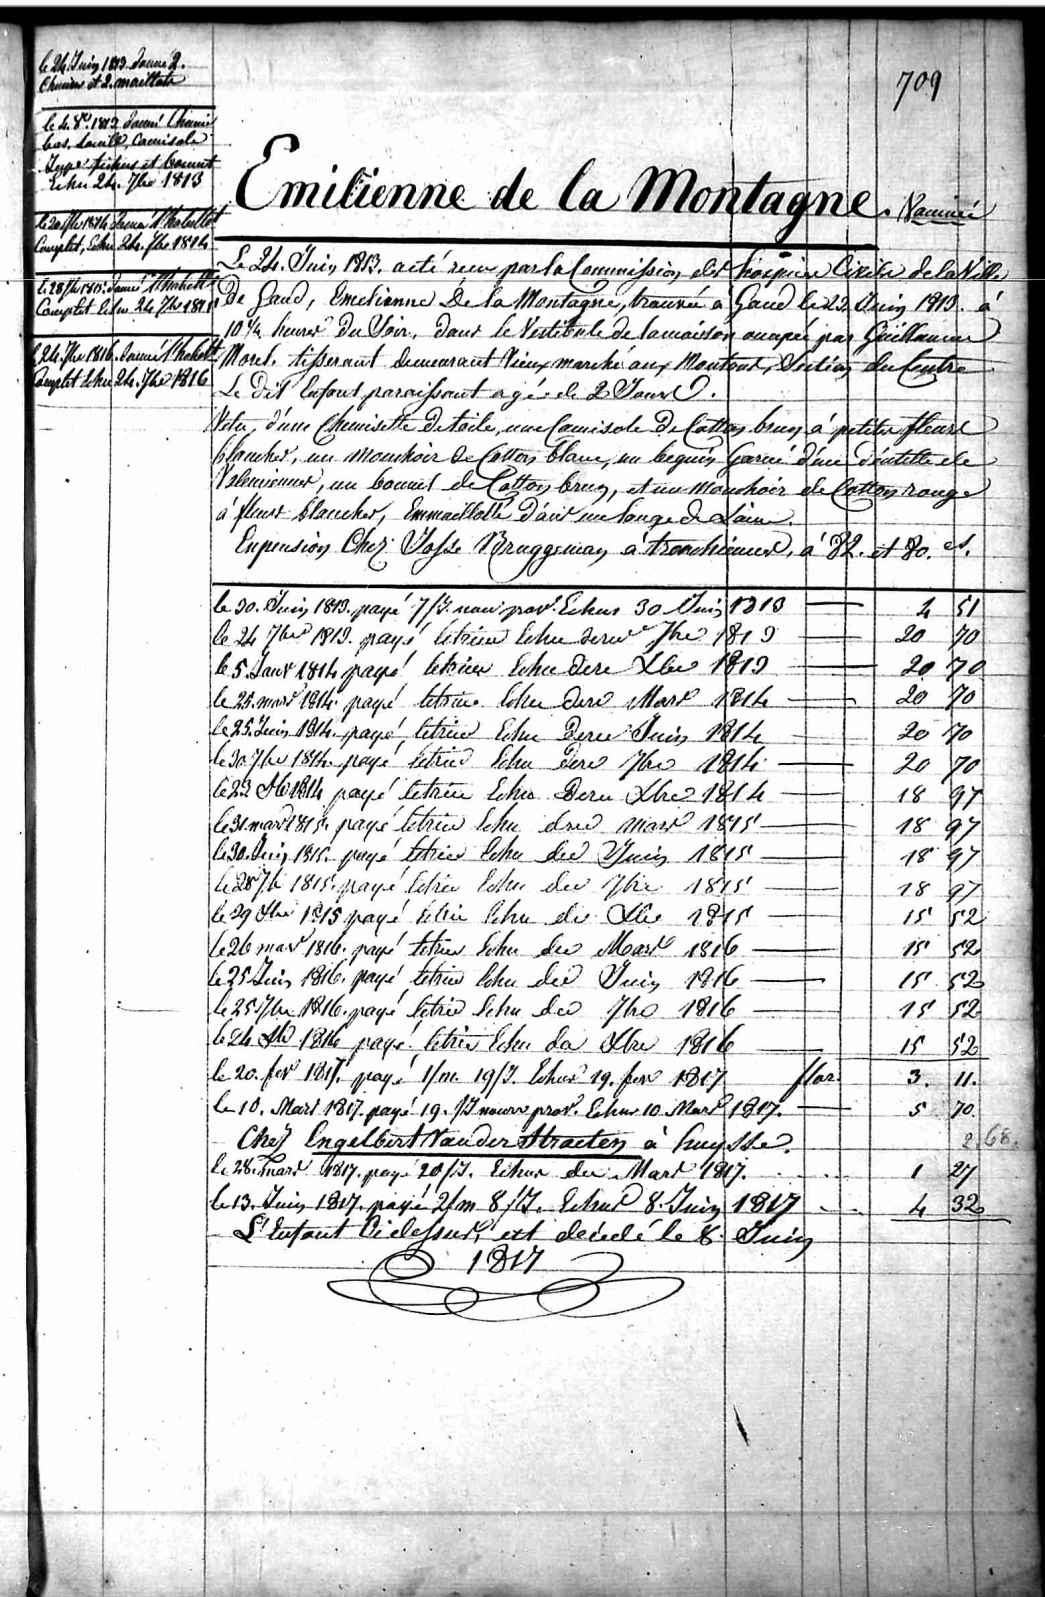 709
le 24 Juin 1813 donné 2.
Chemises et 2. maillots
le 4. 8bre 1813 donné Chemise
bas, Camisole
Jupe fichus et bonnet
Echu 24. 7bre 1813
le 20 7bre 1814 donné l'habillt
Complet, Echu 24. 7bre 1814
le 28 7bre 1815. donné l'habillt
Complet Echu 24 7bre 1815
le 24. 7bre 1816. donné l'habillt
Complet Echu 24. 7bre 1816
Emilienne de la Montagne. Vaccinée
Le 24. Juin 1813. acté reçu par la Commission des hospices Civils de la Ville
De Gand, Emelienne De la Montagne, trouvée à Gand le 23. Juin 1813. à
10 ½ heures Du Soir, dans le Vestibule de la maison occupée par Guillaume
Morel. tisserant demeurant Vieux marché aux Moutons, Section du Centre
Le Dit Enfant paraissant agée de 2 Jours.
Vetu, d'une Chemisette de toile, une Camisole De Cotton brun à petites fleurs
blanches, un mouchoir de Cotton blanc, un beguin Garni d'une dentelle de
Valenciennes, un bonnet de Cotton brun, et un Mouchoir de Cotton rouge
à fleurs blanches, Emmaillotté d'un lange de Laine.
En pension Chez Josse Bruggeman, à tronchiennes, à 82. et 80. cs.
le 30. Juin 1813. payé 7/J. nour. prov. Echus 30 Juin 1813 51
le 24 7bre 1813. payé letrim Echu dern 7bre 1813 20 70
le 5. Janv 1814 payé letrim Echu dere Xbre 1813 20 70
le 25. mars 1814. payé letrim Echu dere Mars 1814 20 70
le 25. Juin 1814. payé letrim Echu Dere Juin 1814 20 70
le 30 7bre 1814. payé letrim Echu Dere 7bre 1814 20 70
le 23 Xbre 1814 payé letrim Echu Dern Xbre 1814 18 97
le 31 mars 1815. payé letrim Echu dre mars 1815 18 97
le 30. Juin 1815. payé letrim Echu der Juin 1815 18 97
le 28 7bre 1815. payé letrim Echu der 7bre 1815 18 97
le 29 Xbre 1815 payé letrim Echu der Xbre 1815 15 52
le 26 mars 1816. payé letrim Echu der Mars 1816 15 52
le 25 Juin 1816. payé letrim Echu der Juin 1816 15 52
le 25 7bre 1816. payé letrim Echu der 7bre 1816 15 52
le 24 Xbre 1816 payé letrim Echu der Xbre 1816 15 52
le 20. fevr 1817. payé 1/m. 19/J. Echus 19. fevr 1817 flor. 3. 11.
le 10. Mars 1817. payé 19. /J nourr prov. Echus 10 Mars 1817. 5 70
Chez Engelbert Van der Straeten à huysse. 2.68.
le 28. mars 1817. payé 20/J. Echus der Mars 1817. 1 27
le 13. Juin 1817. payé 2/m 8/J. Echus 8. Juin 1817 4 32
L'Enfant Ci dessus, est décédé le 8. Juin
1817